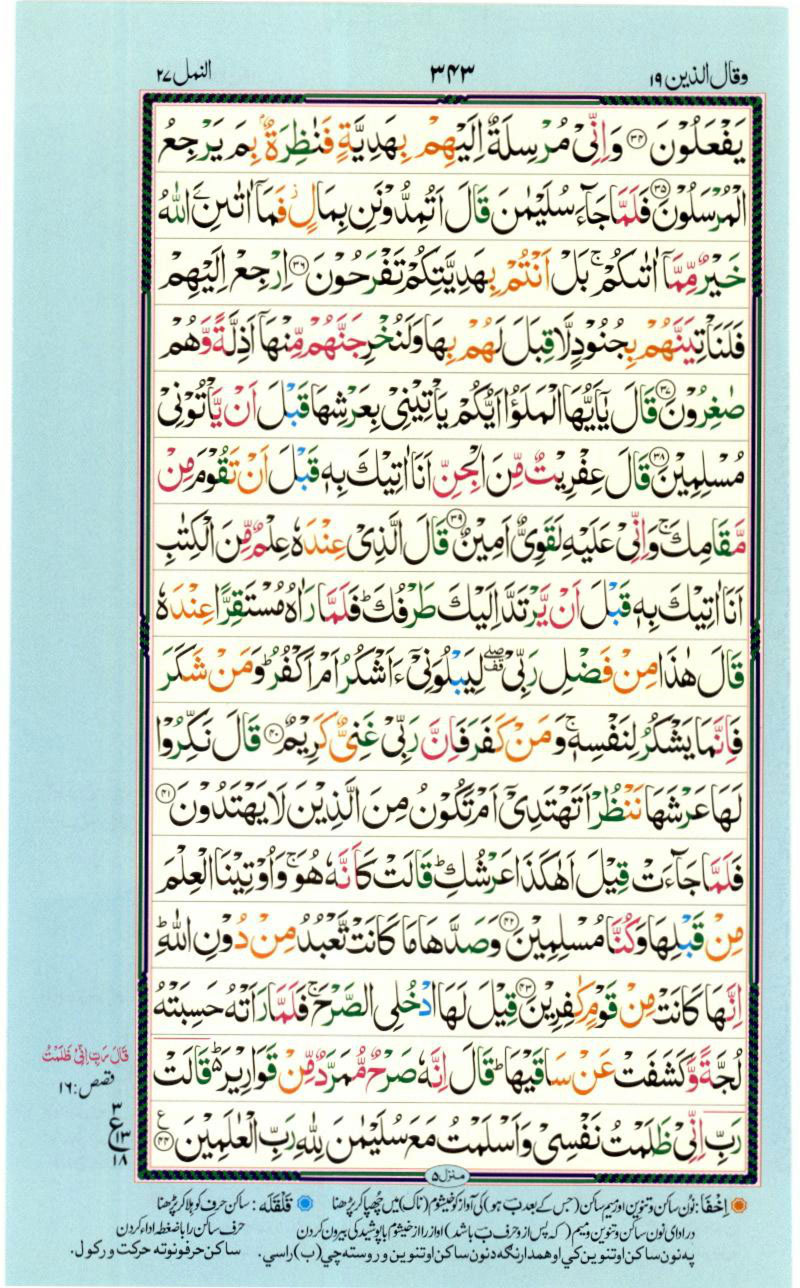 وقال الذين ۱۹ ۳۴۳ النمل ۲۷
يَفْعَلُوْنَ ﴿۳۴﴾ وَاِنِّىْ مُرْسِلَةٌ اِلَيْهِمْ بِهَدِيَّةٍ فَنٰظِرَةٌۢ بِمَ يَرْجِعُ
الْمُرْسَلُوْنَ ﴿۳۵﴾ فَلَمَّا جَآءَ سُلَيْمٰنَ قَالَ اَتُمِدُّوْنَنِ بِمَالٍ ز فَمَاۤ اٰتٰىنِۦَ اللّٰهُ
خَيْرٌ مِّمَّاۤ اٰتٰىكُمْ ۚ بَلْ اَنْتُمْ بِهَدِيَّتِكُمْ تَفْرَحُوْنَ ﴿۳۶﴾ اِرْجِعْ اِلَيْهِمْ
فَلَنَاْتِيَنَّهُمْ بِجُنُوْدٍ لَّا قِبَلَ لَهُمْ بِهَا وَلَنُخْرِجَنَّهُمْ مِّنْهَاۤ اَذِلَّةً وَّهُمْ
صٰغِرُوْنَ ﴿۳۷﴾ قَالَ يٰۤاَيُّهَا الْمَلَؤُا اَيُّكُمْ يَاْتِيْنِىْ بِعَرْشِهَا قَبْلَ اَنْ يَّاْتُوْنِىْ
مُسْلِمِيْنَ ﴿۳۸﴾ قَالَ عِفْرِيْتٌ مِّنَ الْجِنِّ اَنَا اٰتِيْكَ بِهٖ قَبْلَ اَنْ تَقُوْمَ مِنْ
مَّقَامِكَ ۚ وَاِنِّىْ عَلَيْهِ لَقَوِىٌّ اَمِيْنٌ ﴿۳۹﴾ قَالَ الَّذِىْ عِنْدَهٗ عِلْمٌ مِّنَ الْكِتٰبِ
اَنَا اٰتِيْكَ بِهٖ قَبْلَ اَنْ يَّرْتَدَّ اِلَيْكَ طَرْفُكَ ؕ فَلَمَّا رَاٰهُ مُسْتَقِرًّا عِنْدَهٗ
قَالَ هٰذَا مِنْ فَضْلِ رَبِّىْ ۖ لِيَبْلُوَنِىْۤ ءَاَشْكُرُ اَمْ اَكْفُرُ ؕ وَمَنْ شَكَرَ
فَاِنَّمَا يَشْكُرُ لِنَفْسِهٖ ۚ وَمَنْ كَفَرَ فَاِنَّ رَبِّىْ غَنِىٌّ كَرِيْمٌ ﴿۴۰﴾ قَالَ نَكِّرُوْا
لَهَا عَرْشَهَا نَنْظُرْ اَتَهْتَدِىْۤ اَمْ تَكُوْنُ مِنَ الَّذِيْنَ لَا يَهْتَدُوْنَ ﴿۴۱﴾
فَلَمَّا جَآءَتْ قِيْلَ اَهٰكَذَا عَرْشُكِ ؕ قَالَتْ كَاَنَّهٗ هُوَ ۚ وَاُوْتِيْنَا الْعِلْمَ
مِنْ قَبْلِهَا وَكُنَّا مُسْلِمِيْنَ ﴿۴۲﴾ وَصَدَّهَا مَا كَانَتْ تَّعْبُدُ مِنْ دُوْنِ اللّٰهِ ؕ
اِنَّهَا كَانَتْ مِنْ قَوْمٍ كٰفِرِيْنَ ﴿۴۳﴾ قِيْلَ لَهَا ادْخُلِى الصَّرْحَ ۚ فَلَمَّا رَاَتْهُ حَسِبَتْهُ
لُجَّةً وَّكَشَفَتْ عَنْ سَاقَيْهَا ؕ قَالَ اِنَّهٗ صَرْحٌ مُّمَرَّدٌ مِّنْ قَوَارِيْرَ ؕ قَالَتْ
رَبِّ اِنِّىْ ظَلَمْتُ نَفْسِىْ وَاَسْلَمْتُ مَعَ سُلَيْمٰنَ لِلّٰهِ رَبِّ الْعٰلَمِيْنَ ﴿۴۴﴾ ع
قَالَ رَبِّ اِنِّىْ ظَلَمْتُ
قصص: ۱۶
۳
ع ۱۳
۱۸
منزل ۵
اِخفَا: نُون ساکن و تنوین اور میم ساکن (جس کے بعد ب ہو) کی آواز کو خیشوم (ناک) میں چھپا کر پڑھنا قَلقَلَه: ساکن حرف کو ہلا کر پڑھنا
در ادای نون ساکن و تنوین و میم (که پس از و حرف ب باشد) آواز را از خیشوم با پوشیدگی بیرون کردن حرف ساکن را با ضغطه ادا کردن
په نون ساکن او تنوین کي او همدارنګه د نون ساکن او تنوین و روسته چي (ب) راسي. ساکن حرفونو ته حرکت ورکول.